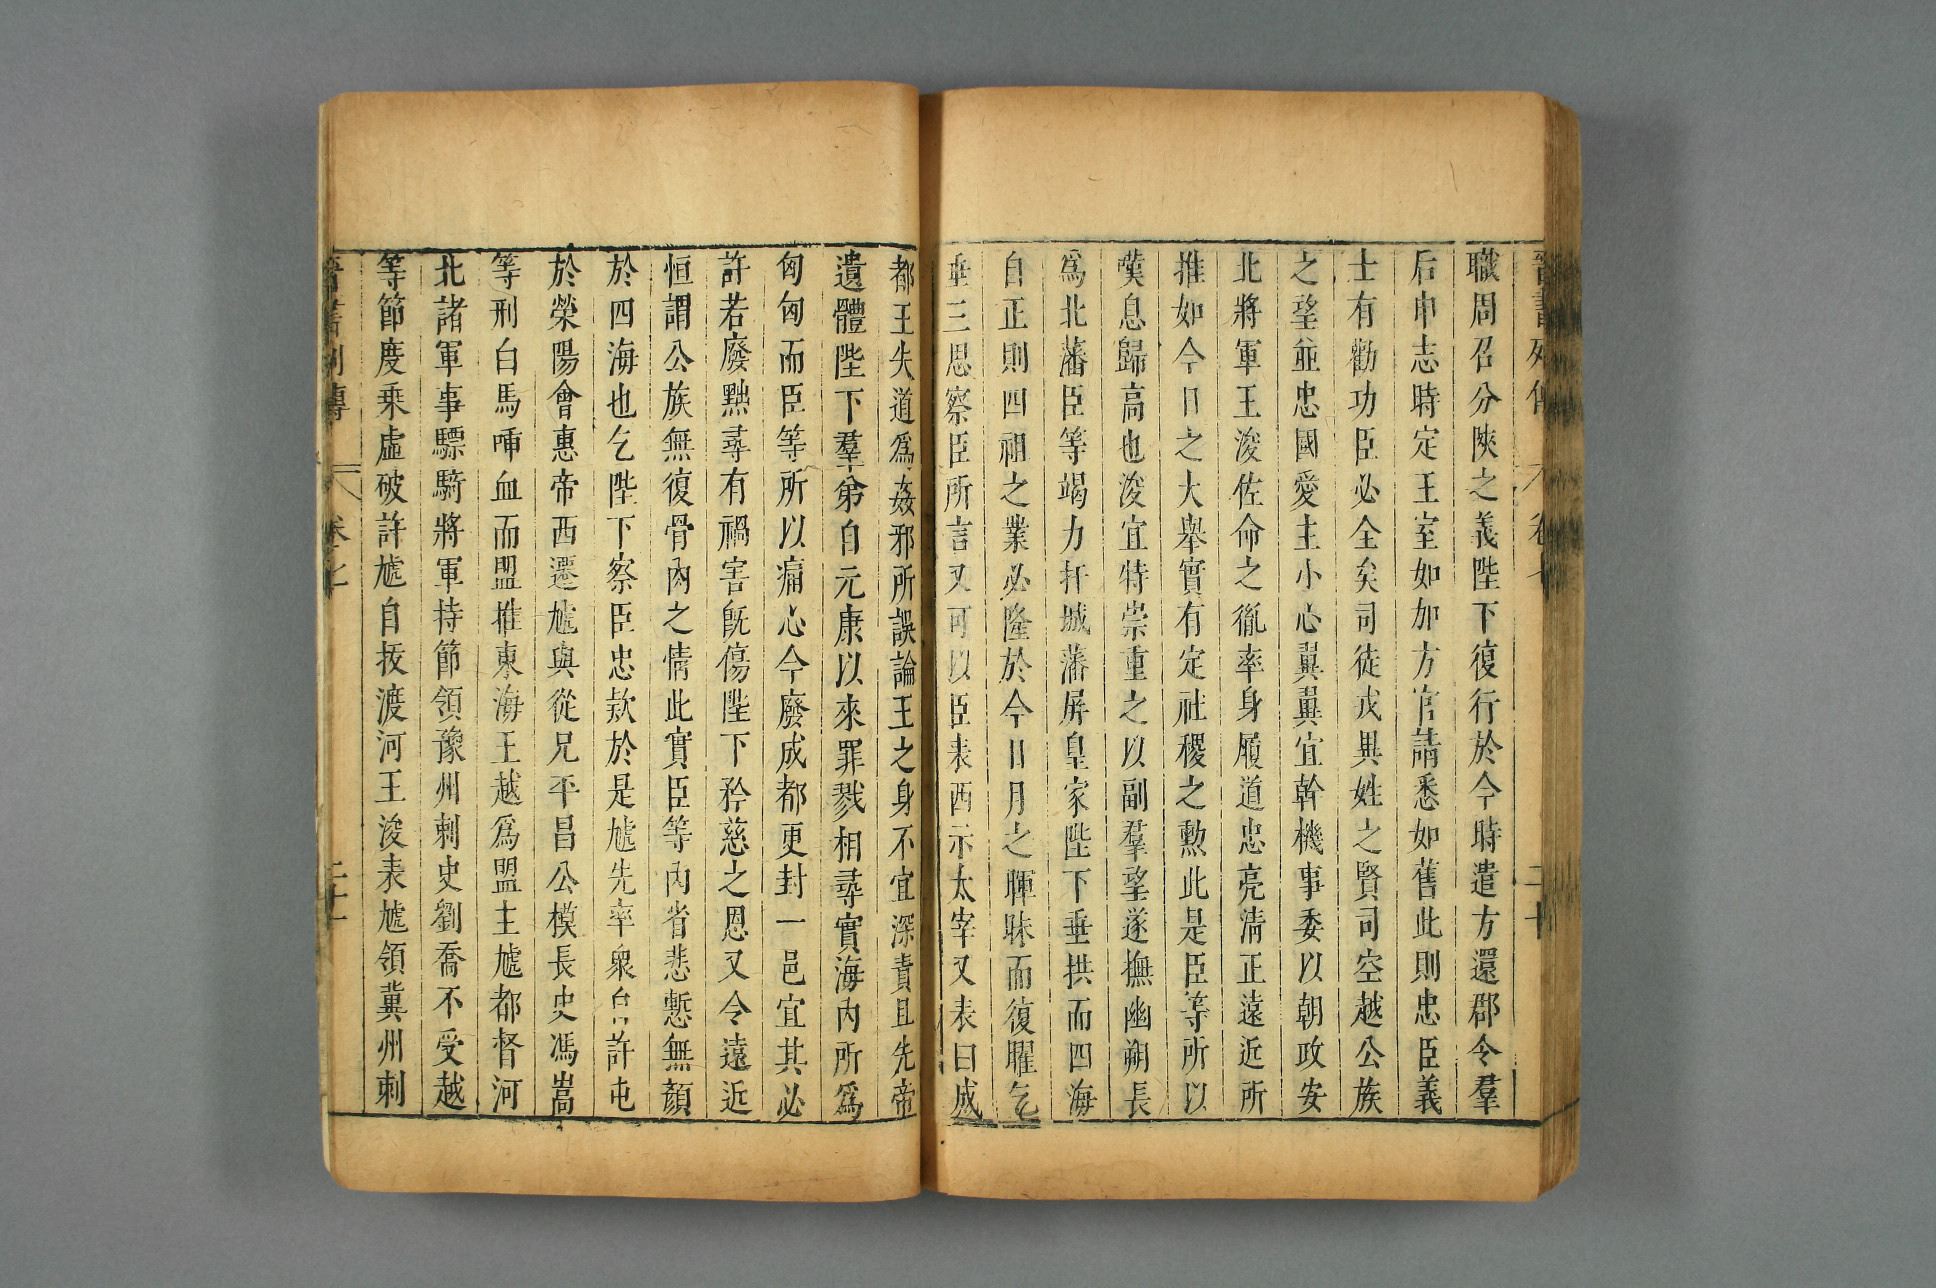 晉書列傳 卷七 二十
職周召分陝之義陛下復行於今時遣方還郡令羣
后申志時定王室如加方官請悉如舊此則忠臣義
士有勸功臣必全矣司徒戎異姓之賢司空越公族
之望並忠國愛主小心翼翼宜幹機事委以朝政安
北將軍王浚佐命之胤率身履道忠亮清正遠近所
推如今日之大舉實有定社稷之勲此是臣等所以
嘆息歸高也浚宜特崇重之以副羣望遂撫幽朔長
爲北藩臣等竭力扞城藩屏皇家陛下垂拱而四海
自正則四祖之業必隆於今日月之暉昧而復曜乞
垂三思察臣所言又可以臣表西示太宰又表曰成
都王失道爲姦邪所誤論王之身不宜深責且先帝
遺體陛下羣弟自元康以來罪戮相尋實海内所爲
匈匈而臣等所以痛心今廢成都更封一邑宜其必
許若廢黜尋有禍害旣傷陛下矜慈之恩又令遠近
恒謂公族無復骨肉之情此實臣等内省悲慙無顔
於四海也乞陛下察臣忠款於是虓先率衆自許屯
於滎陽會惠帝西遷虓與從兄平昌公模長史馮嵩
等刑白馬喢血而盟推東海王越爲盟主虓都督河
北諸軍事驃騎將軍持節領豫州刺史劉喬不受越
等節度乗虛破許虓自拔渡河王浚表虓領冀州刺
晉書列傳 卷七 二十一